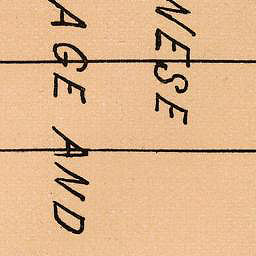 NESE
AGE AND